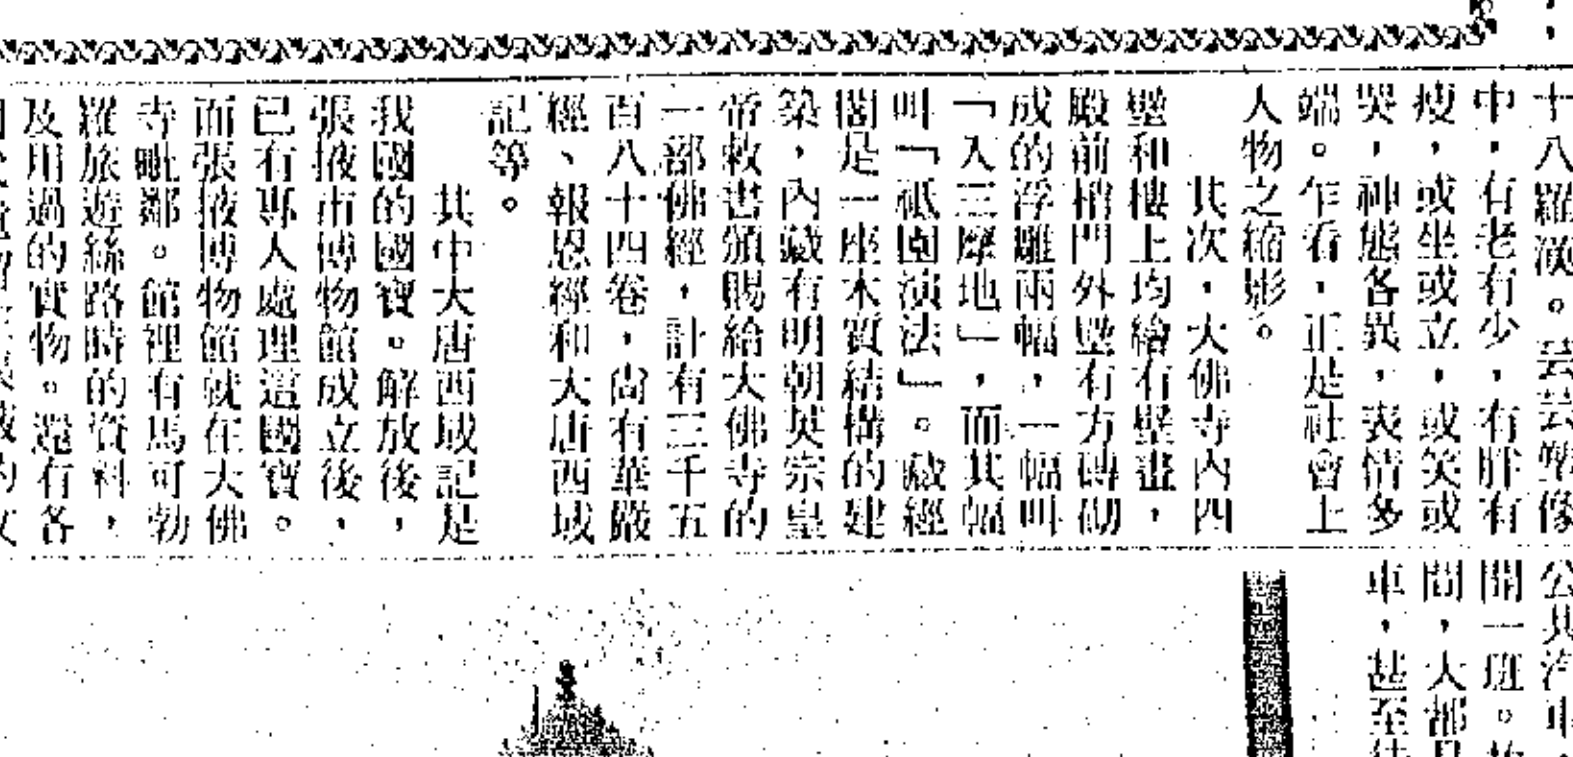 十八羅漢。芸芸塑像
中，有老有少，有胖有
瘦，或坐或立，或笑或
哭，神態各異，表情多
端。乍看，正是社會上
人物之縮影。
其次，大佛寺內四
壁和樓上均繪有壁畫，
殿前梢門外壁有方磚砌
成的浮雕兩幅，一幅叫
「入三摩地」，而其幅
叫「祇園演法」。藏經
閣是一座木質結構的建
築，內藏有明朝英宗皇
帝敕書頒賜給大佛寺的
一部佛經，計有三千五
百八十四卷，尚有華嚴
經、報恩經和大唐西域
記等。
其中大唐西域記是
我國的國寶。解放後，
張掖市博物館成立後，
已有專人處理這國寶。
而張掖博物館就在大佛
寺毗鄰。館裡有馬可勃
羅旅遊絲路時的資料，
及用過的實物。還有各
公共汽車
開一班。
間，大都
車，甚至